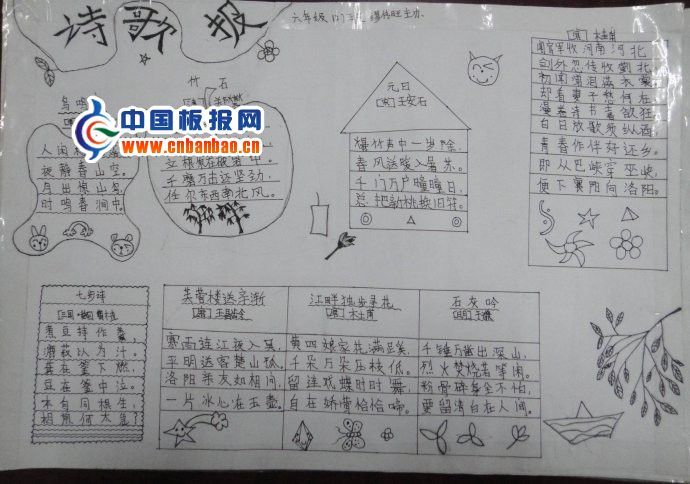 诗歌报
六年级
鸟鸣
夜静春山空。
月出惊山鸟,
时鸣春涧中。
竹石
千磨万击还坚劲,
任尔东西南北风。
元日
[宋]王安石
爆竹声中一岁除,
春风送暖入屠苏。
千门万户曈曈日,
总把新桃换旧符。
[唐]杜甫
闻官军收河南河北
剑外忽传收蓟北,
初闻涕泪满衣裳。
却看妻子愁何在,
漫卷诗书喜欲狂。
白日放歌须纵酒,
青春作伴好还乡。
即从巴峡穿巫峡,
便下襄阳向洛阳。
中国板报网
www.cnbanbao.cn
七步诗
煮豆持作羹,
漉菽以为汁。
萁在釜下燃,
豆在釜中泣。
本自同根生,
相煎何太急?
芙蓉楼送辛渐
[唐]王昌龄
寒雨连江夜入吴,
平明送客楚山孤。
洛阳亲友如相问,
一片冰心在玉壶。
江畔独步寻花
[唐]杜甫
黄四娘家花满蹊,
千朵万朵压枝低。
留连戏蝶时时舞,
自在娇莺恰恰啼。
石灰吟
[明]于谦
千锤万凿出深山,
烈火焚烧若等闲。
粉骨碎身全不怕,
要留清白在人间。